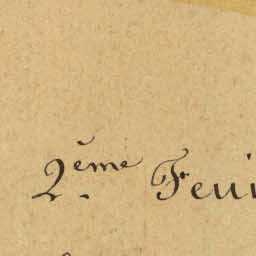 2.ème Feui